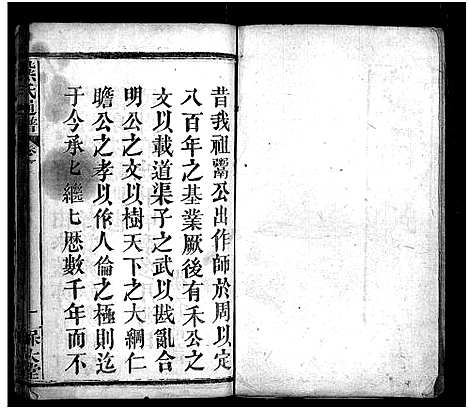 昔我祖鬻公出作師於周以定
八百年之基業厥後有禾公之
文以載道渠子之武以戡亂合
明公之文以樹天下之大綱仁
瞻公之孝以作人倫之極則迄
于今承匕繼匕歷數千年而不
氏通譜
一
保大堂